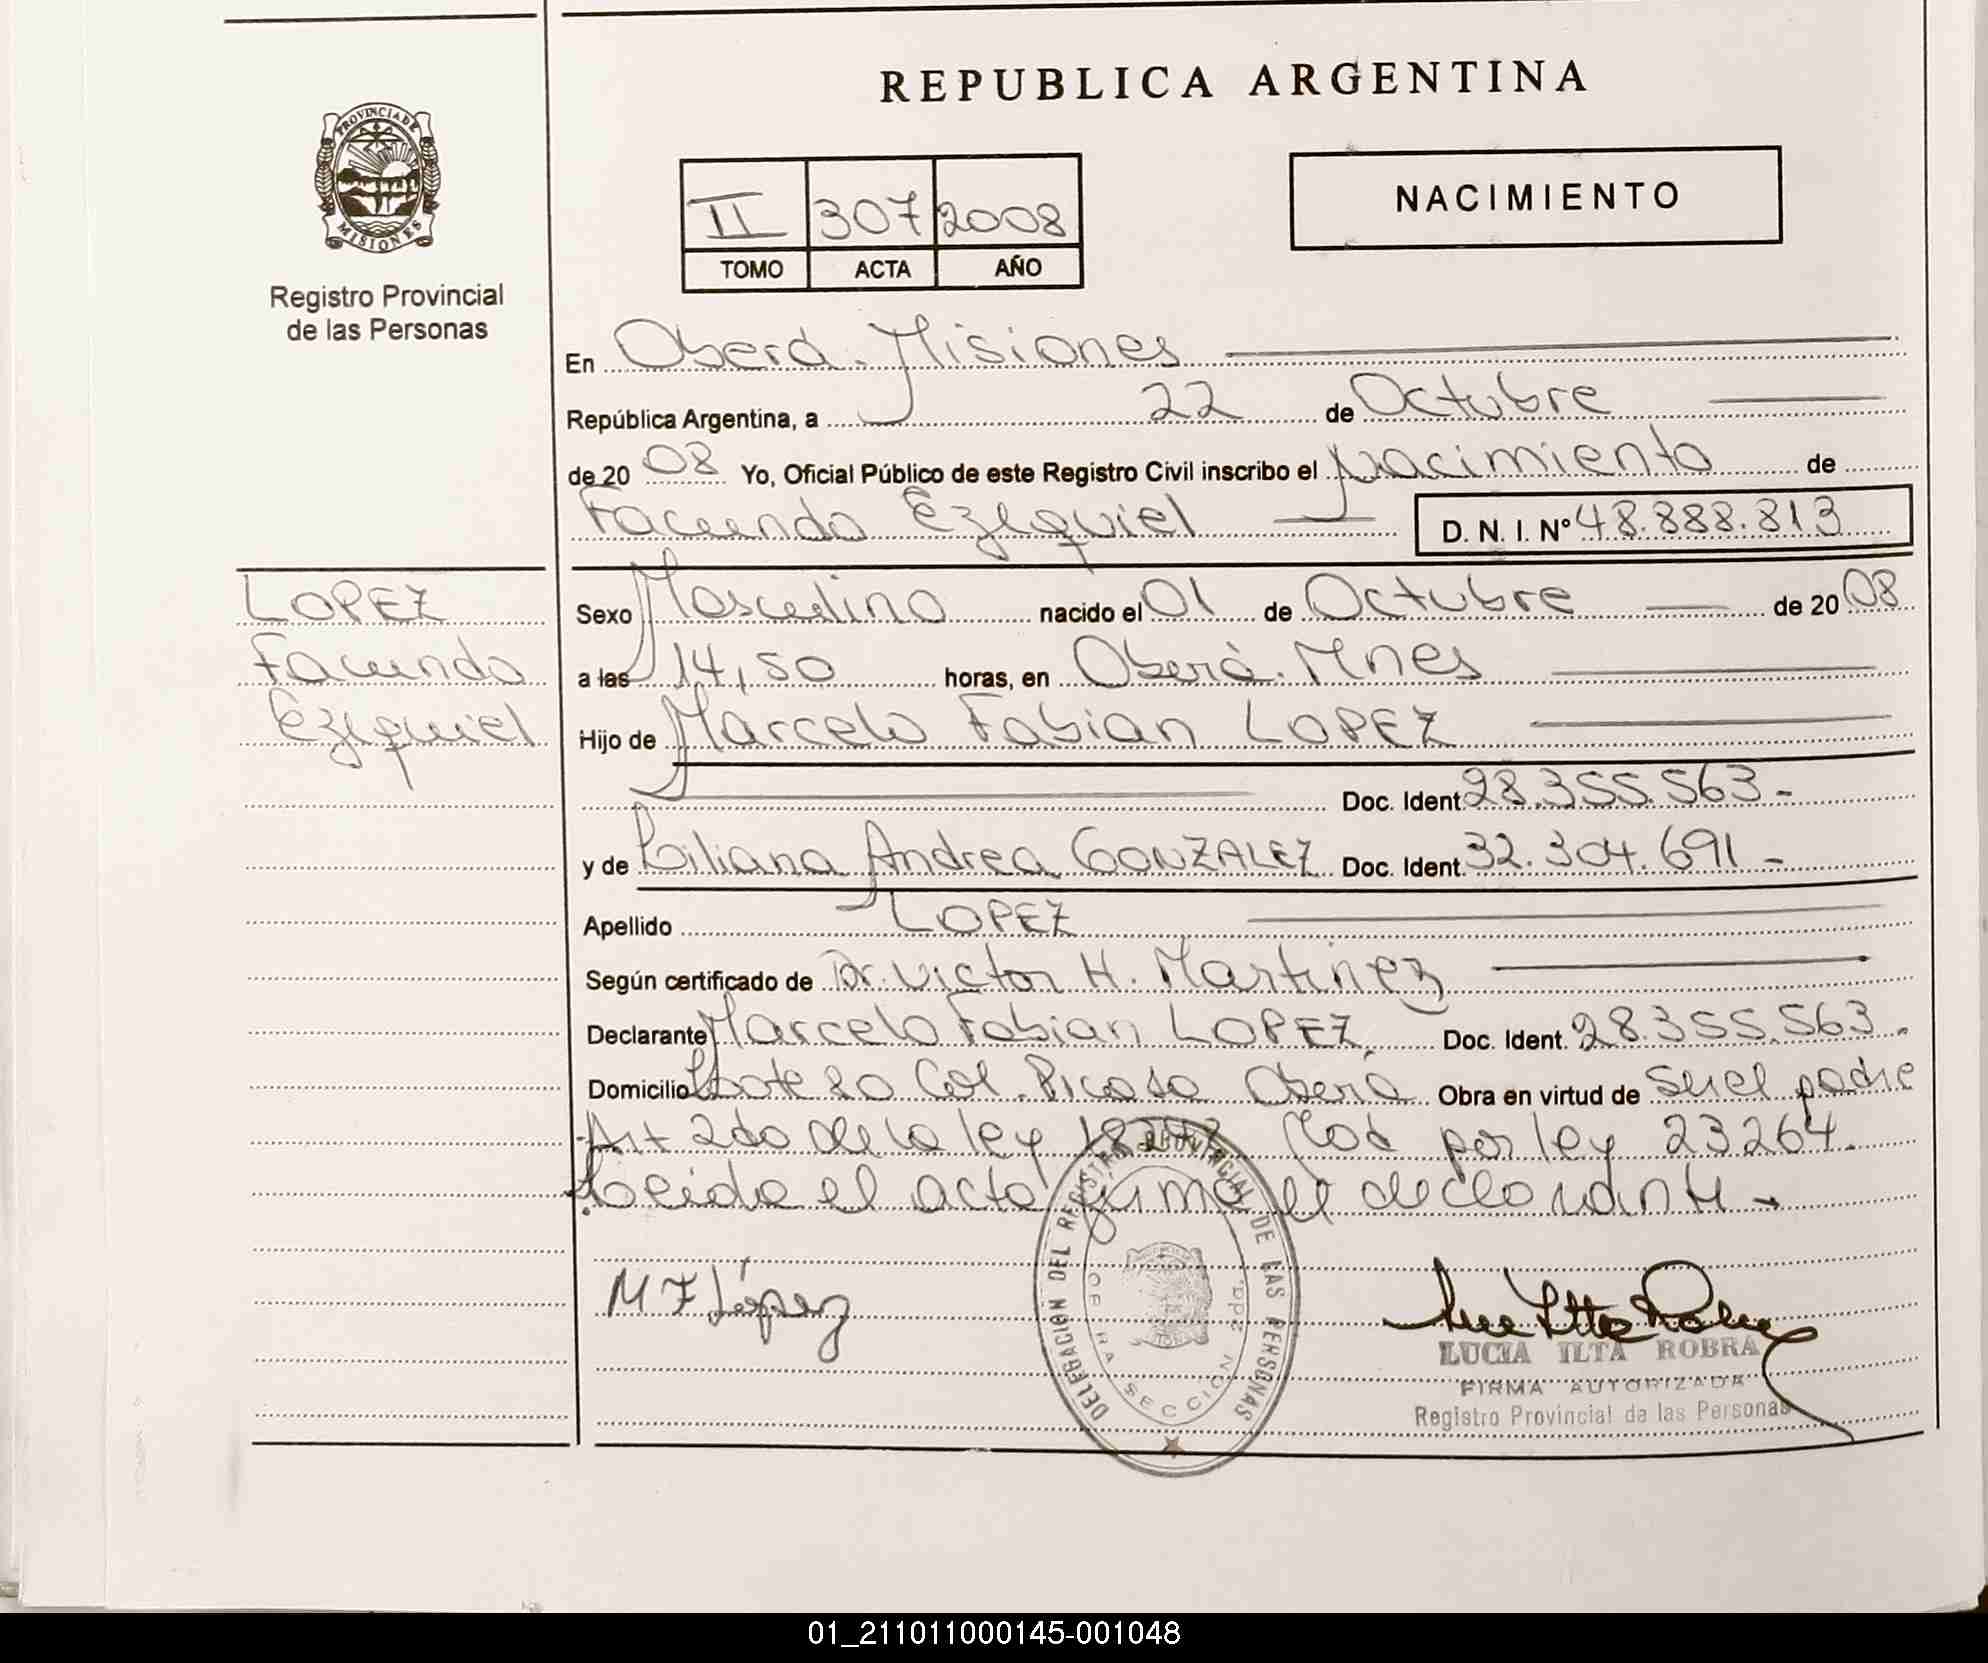 REPUBLICA ARGENTINA
PROVINCIA DE MISIONES
Registro Provincial
de las Personas
II 307 2008
TOMO ACTA AÑO
NACIMIENTO
En Oberá. Misiones
República Argentina, a 22 de Octubre
de 20 08 Yo, Oficial Público de este Registro Civil inscribo el Nacimiento de
Facundo Ezequiel D. N. I. Nº 48.888.813
LOPEZ
Facundo
Ezequiel
Sexo Masculino nacido el 01 de Octubre de 20 08
a las 14,50 horas, en Oberá. Mnes
Hijo de Marcelo Fabian LOPEZ
Doc. Ident. 28.355.563-
y de Liliana Andrea GONZALEZ Doc. Ident. 32.304.691-
Apellido LOPEZ
Según certificado de Dr. Victor H. Martinez
Declarante Marcelo Fabian LOPEZ. Doc. Ident. 28.355.563.
Domicilio Lote 80 Col. Picada Oberá Obra en virtud de ser el padre
Art 2do de la ley Mod por ley 23264.
Leida el acta firma el declarante-
M F López
DELEGACION DEL REGISTRO PROVINCIAL DE LAS PERSONAS
OBERA SECCION 2da.
LUCIA ILTA ROBRA
FIRMA AUTORIZADA
Registro Provincial de las Personas
01_211011000145-001048